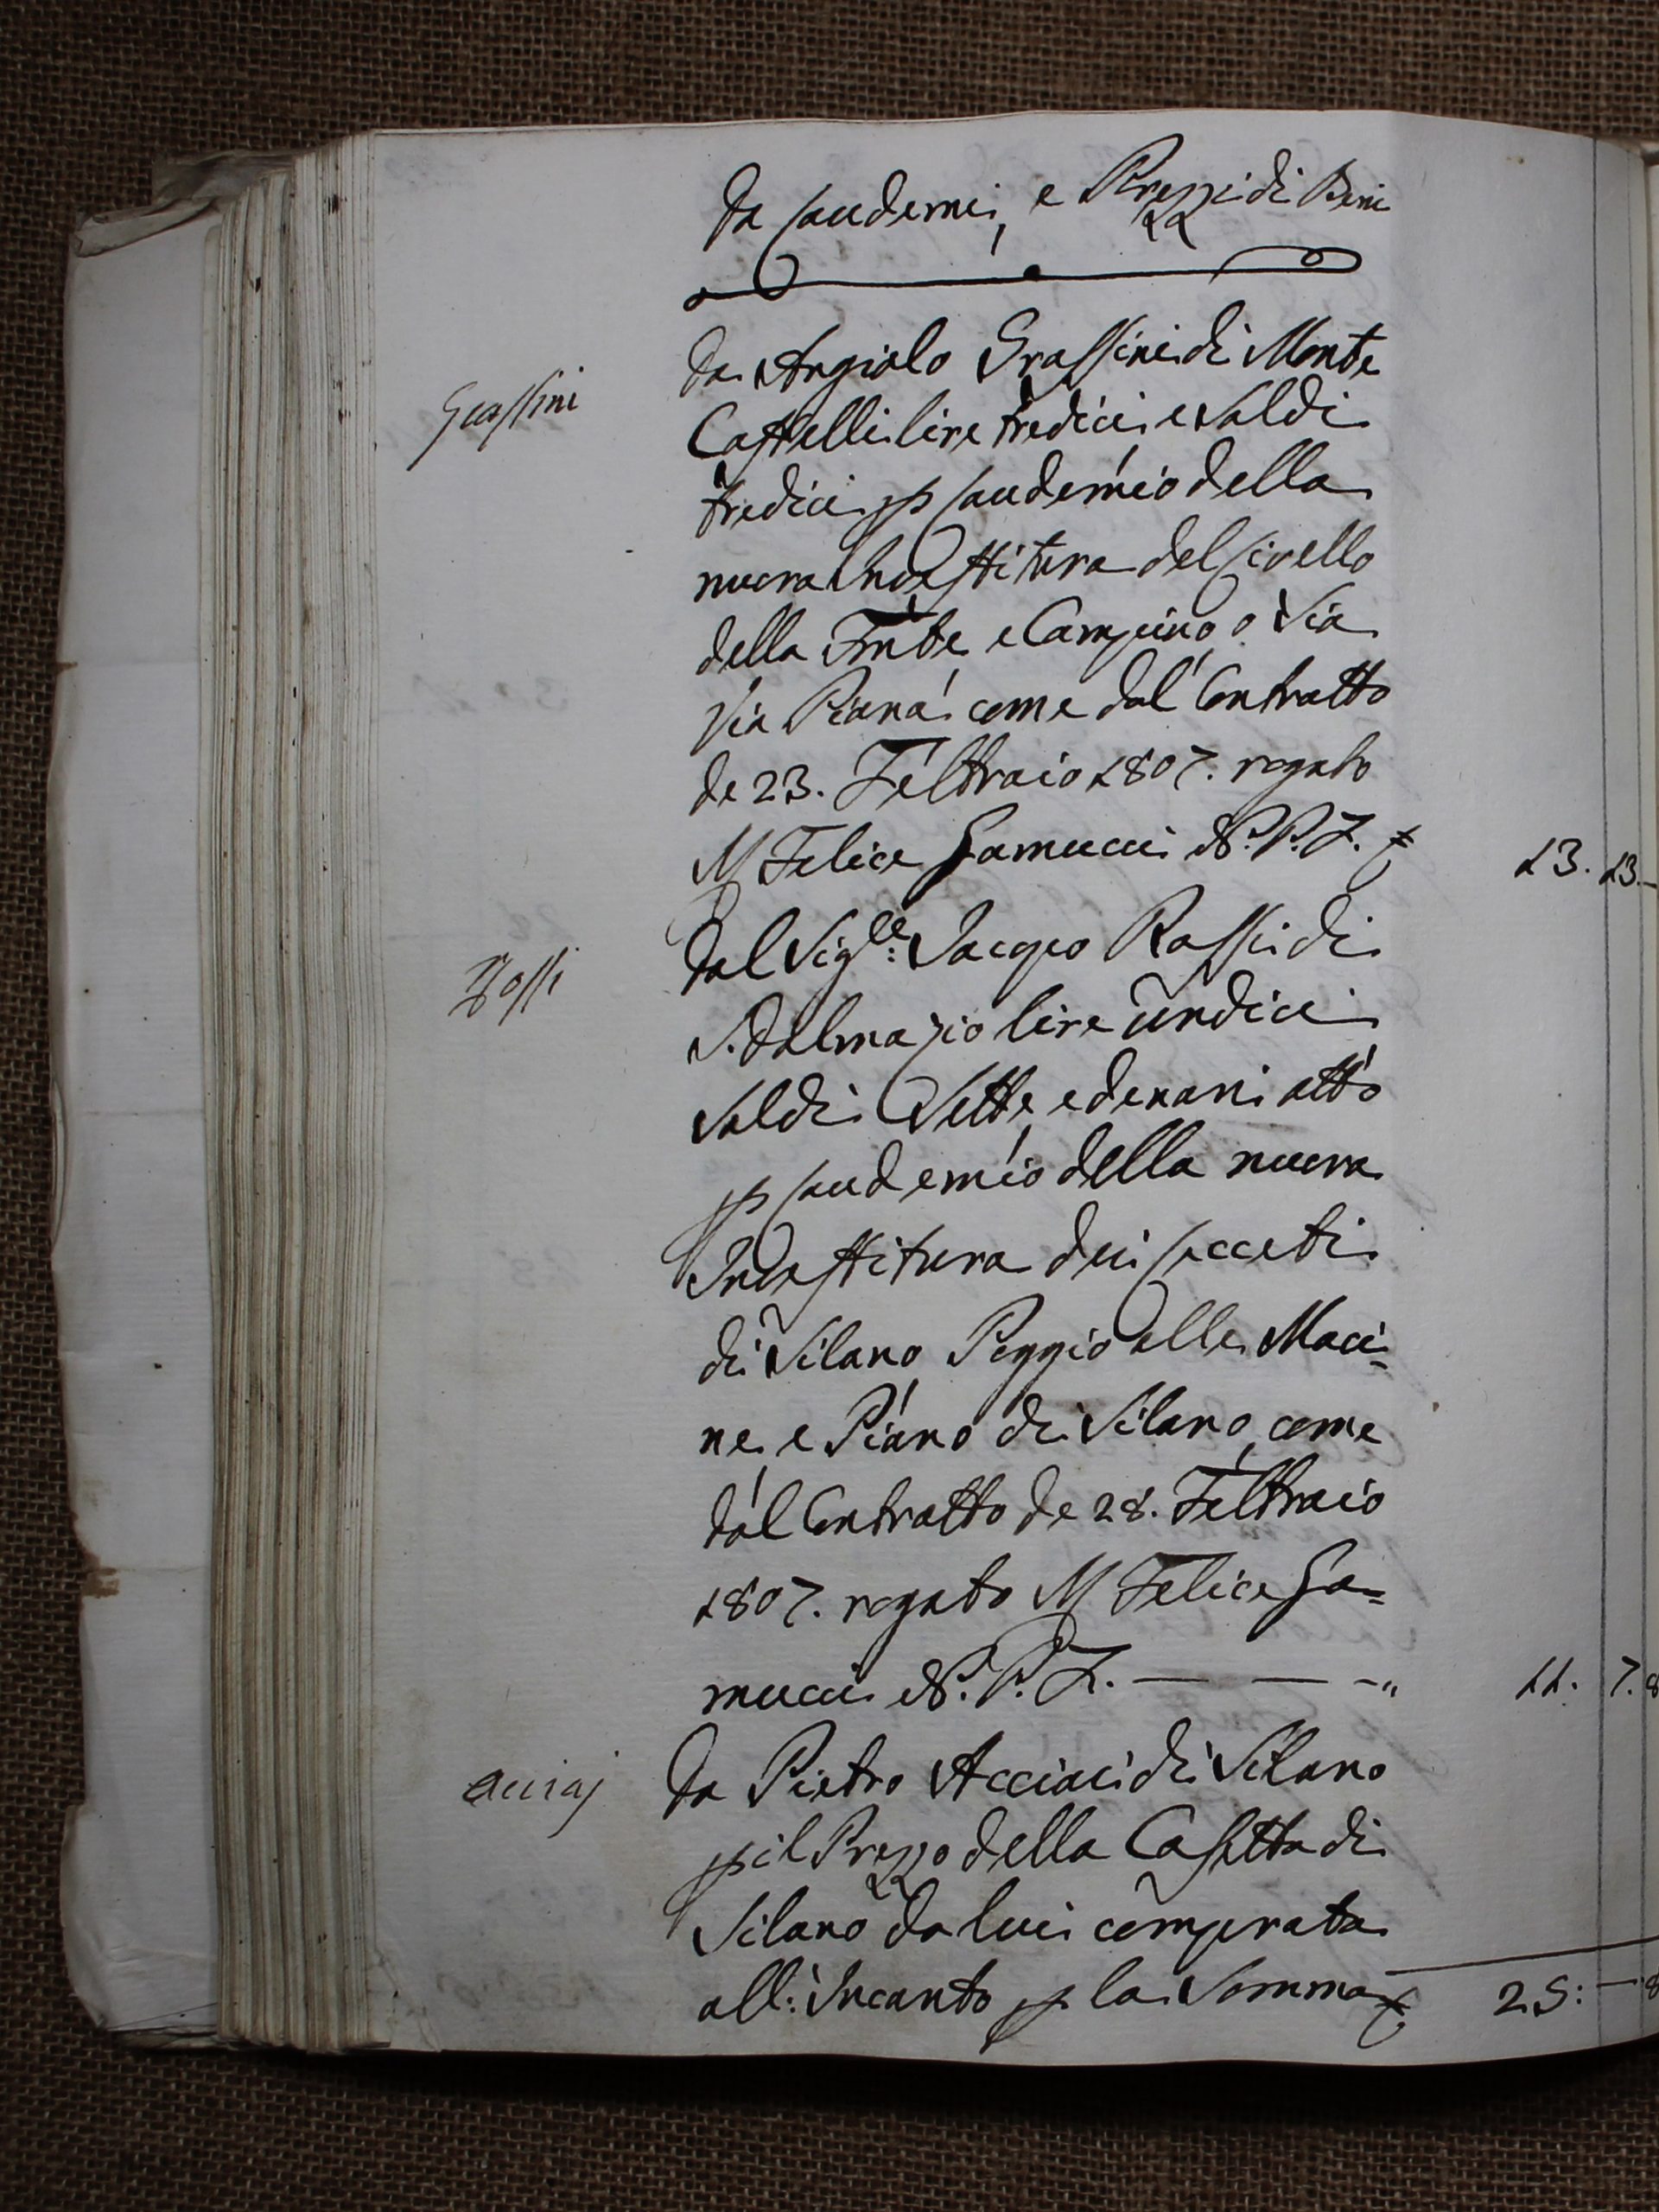 Da Laudemi, e Prezzi di Beni
Grassini
Da Angiolo Grassini di Monte
Castelli lire tredici e Soldi
tredici p Laudemio della
nuova Investitura del Livello
della Fonte, e Campino, o Via
Via Piana come dal Contratto
de 23. Febbraio 1807. rogato
M Felice Gamucci N. P. F. £ 13. 13. –
Rossi
Dal Sig.re Jacopo Rossi di
S. Dalmazio lire undici
Soldi Sette, e denari otto
p Laudemio della nuova
Investitura dei Lecceti
di Silano, Poggio alle Maci=
ne, e Piano di Silano, come
dal Contratto de 28. Febbraio
1807. rogato M Felice Ga=
mucci N. P. F. — — -„ 11. 7. 8
Acciaj
Da Pietro Acciai di Silano
p il Prezzo della Casetta di
Silano da lui comprata
all: Incanto p la Somma £ 25: — 8